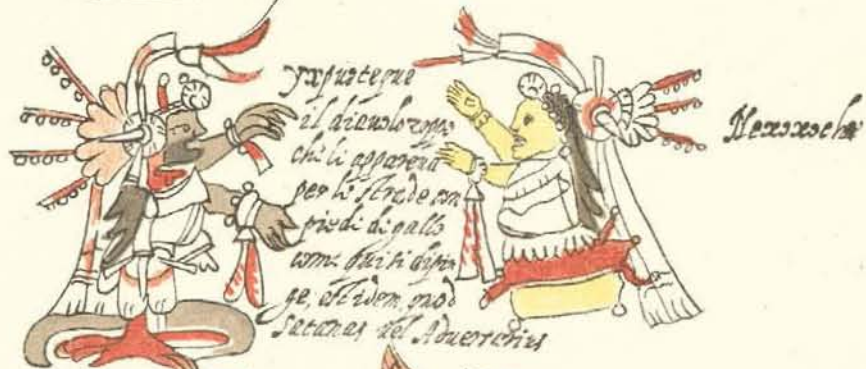 yxputeque
il diauolo zoppo
che li apparena
per le strade con
piedi di gallo
come qui si dipin
ge, est idem, quod
Satanas vel Aduersarius
Nexoxocho